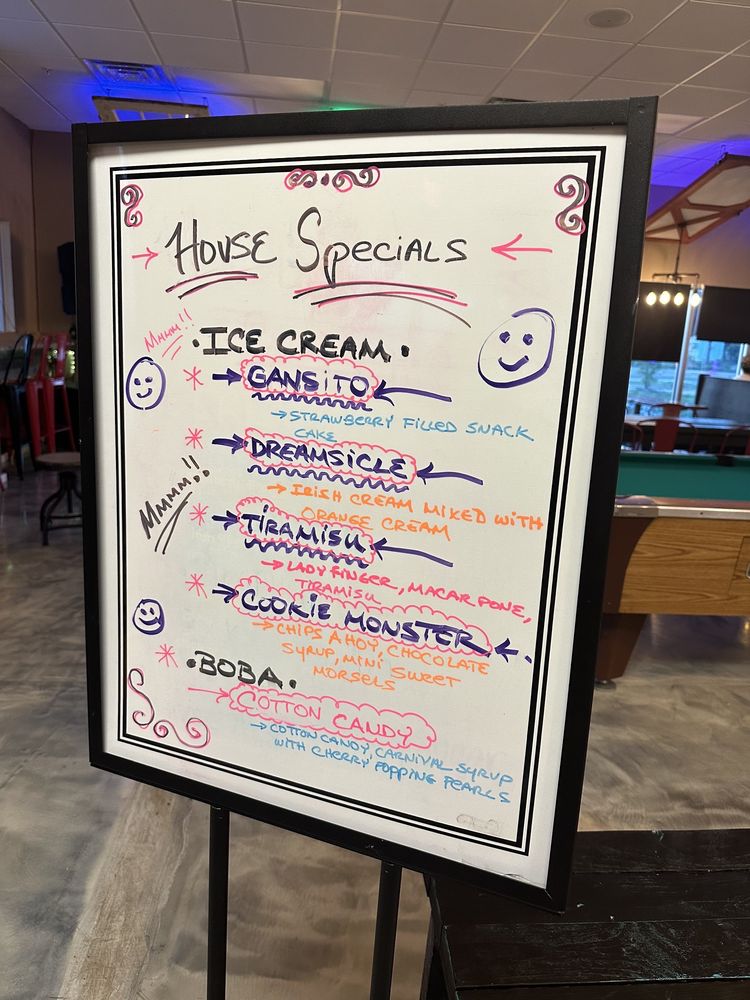 House Specials
Mmmm!!
• ICE CREAM •
GANSITO
STRAWBERRY FILLED SNACK
CAKE
DREAMSICLE
IRISH CREAM MIXED WITH
ORANGE CREAM
Mmmm!!
TIRAMISU
LADY FINGER, MACARPONE,
TIRAMISU
COOKIE MONSTER
CHIPS AHOY, CHOCOLATE
SYRUP, MINI SWEET
MORSELS
• BOBA •
COTTON CANDY
COTTON CANDY, CARNIVAL SYRUP
WITH CHERRY POPPING PEARLS